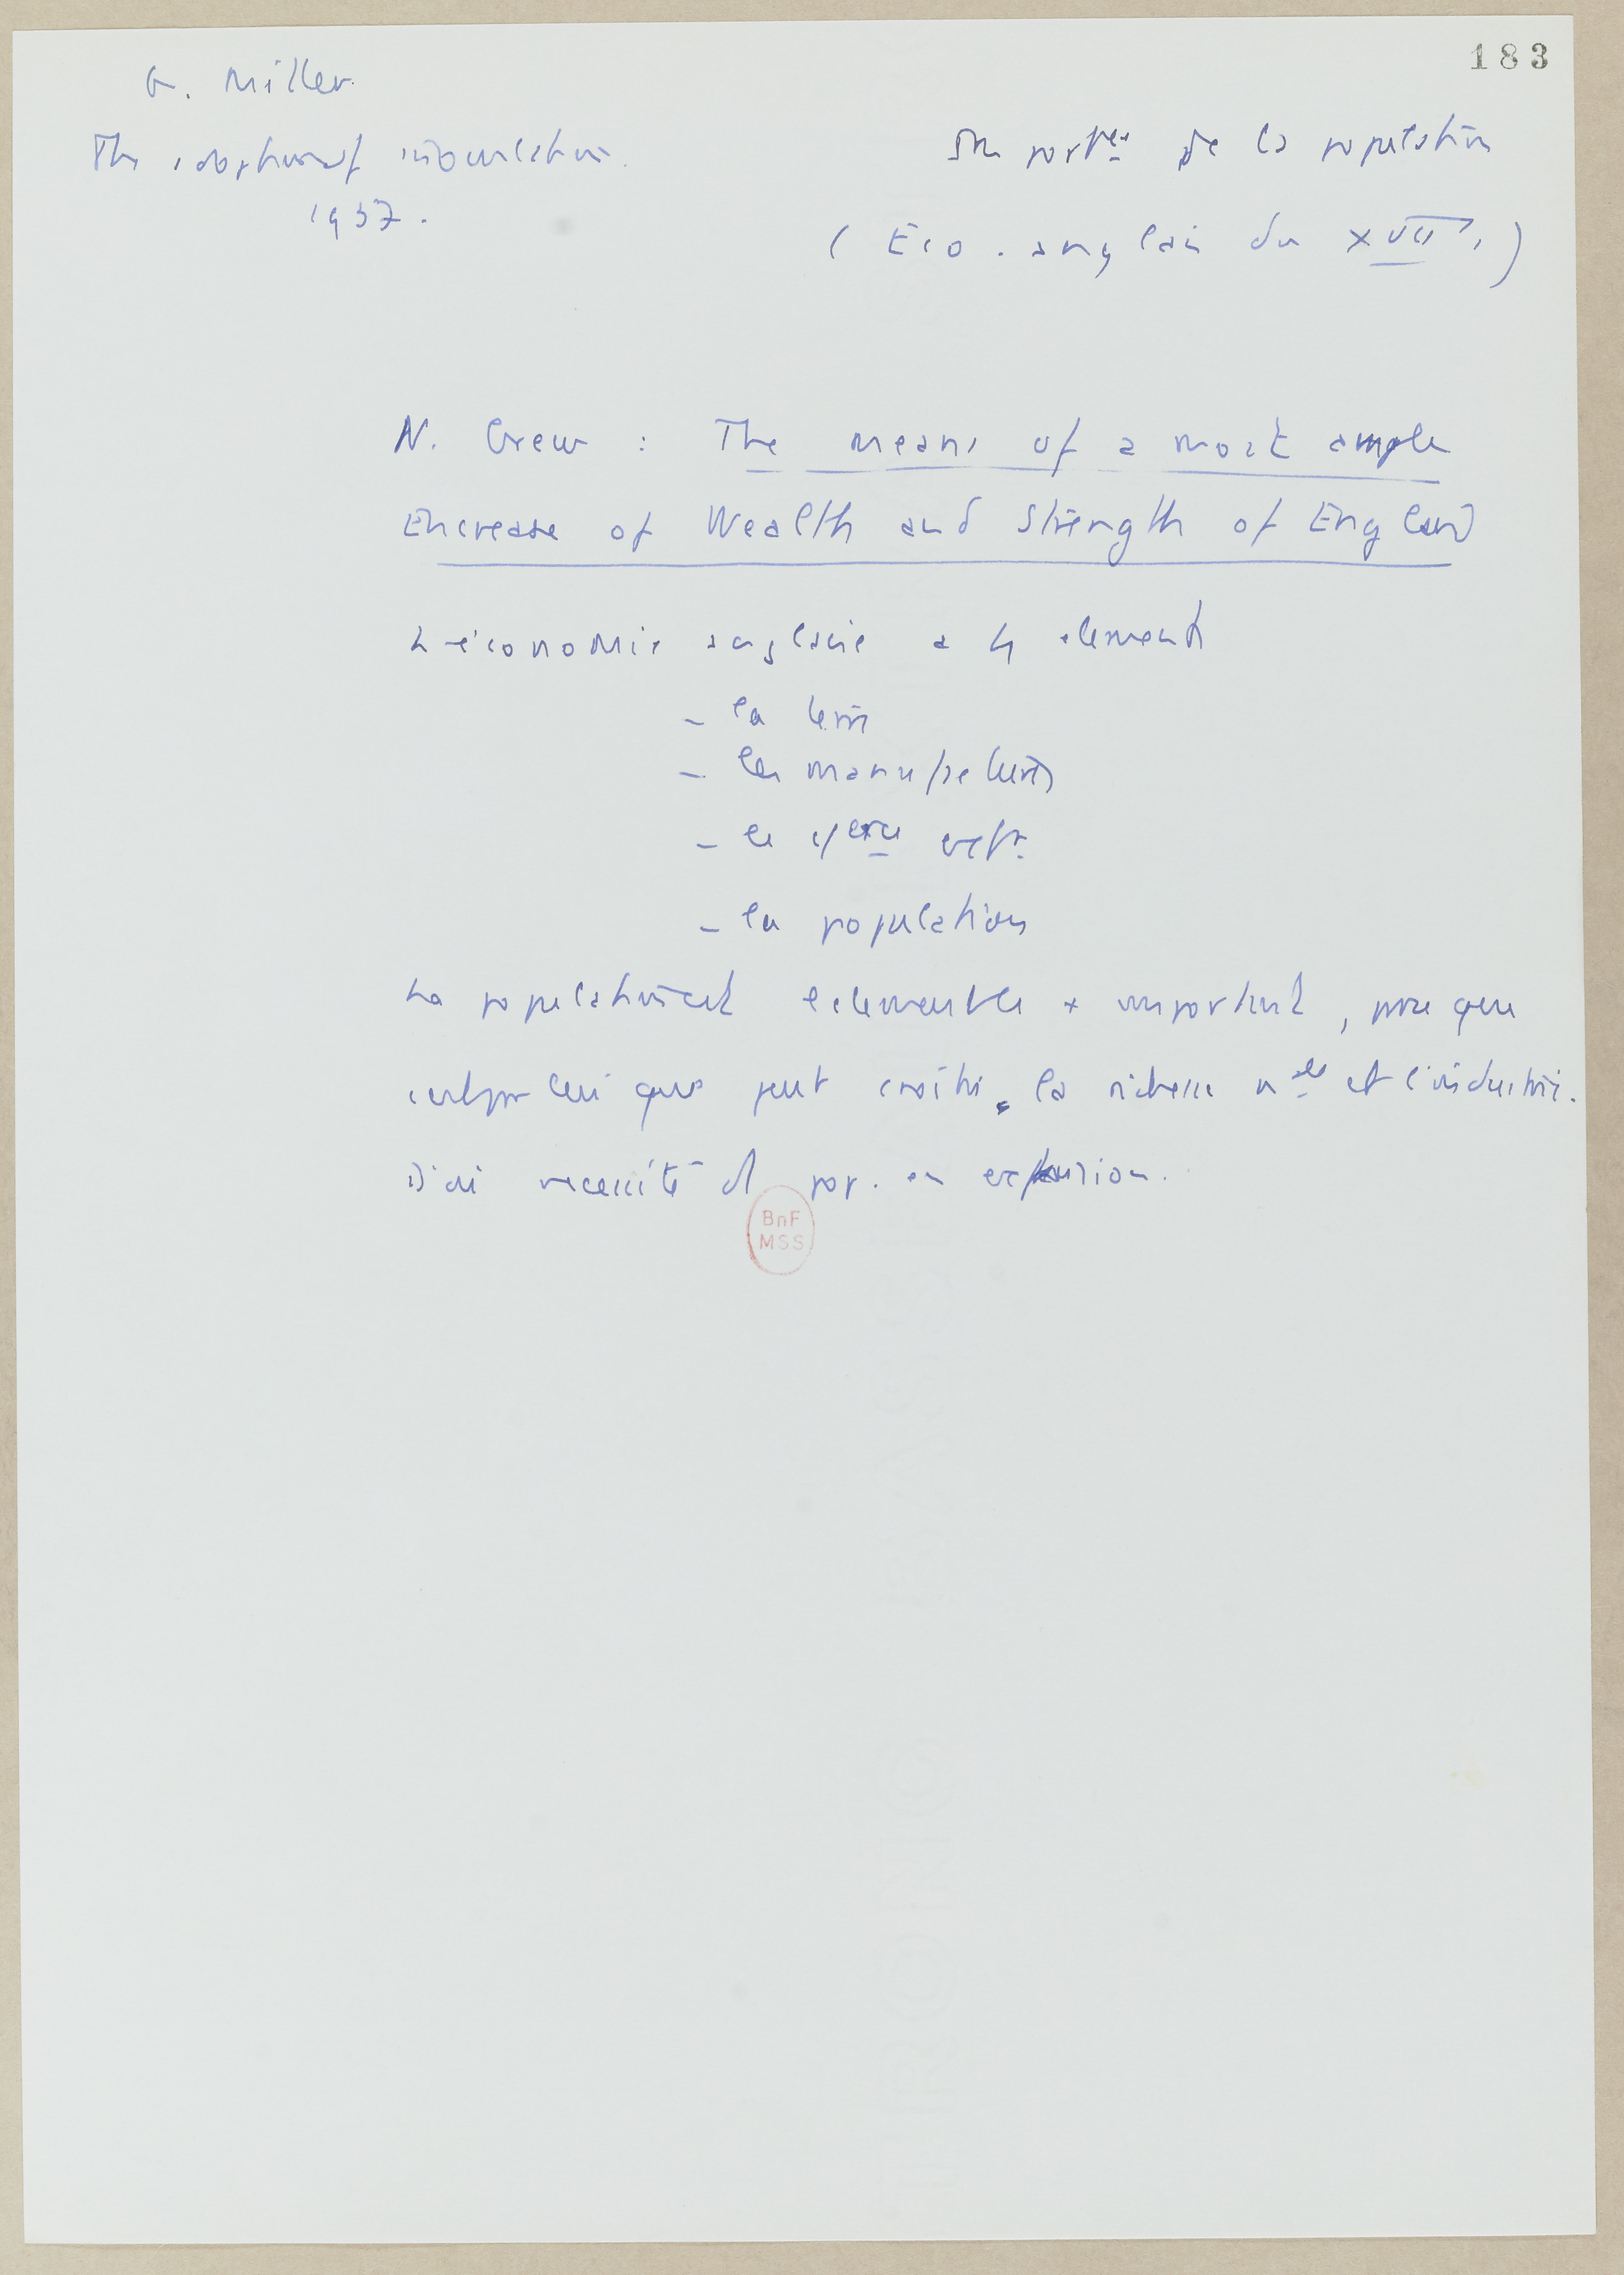 183
G. Miller.
The adoption of inoculation.
1957.
Importce de la population
(Eco. anglais du XVIIe)
N. Grew : The means of a most ample
Encrease of Wealth and Strength of England
L'économie anglaise a 4 elements
- la terre
- les manufactures
- le c/erce extr.
- la population
La population est l'element le + important, pce que
c'est par lui que peut croître la richesse nelle et l'industrie.
D'où necessité d' pop. en expansion.
BnF
MSS